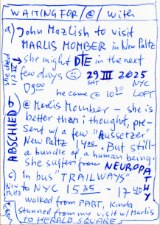 WAITING FOR /@/ with
a) John Mazlish to visit
MARLIS MOMBER in New Paltz
she might DIE in the next
few days 29 III 2025
he came @ 10
@ Marlis Momber - she is
better than i thought, pre-
sent w/ a few "Aussetzer"
New Paltz 1400. But still
a bundle of a human being
she suffers from NEUROPATHY
c) in bus "TRAILWAYS"
to NYC 1525 - 17
walked from PABT, Kinda
stunned from my visit w/ Marlis
TO HERALD SQUARE
ABSCHIED